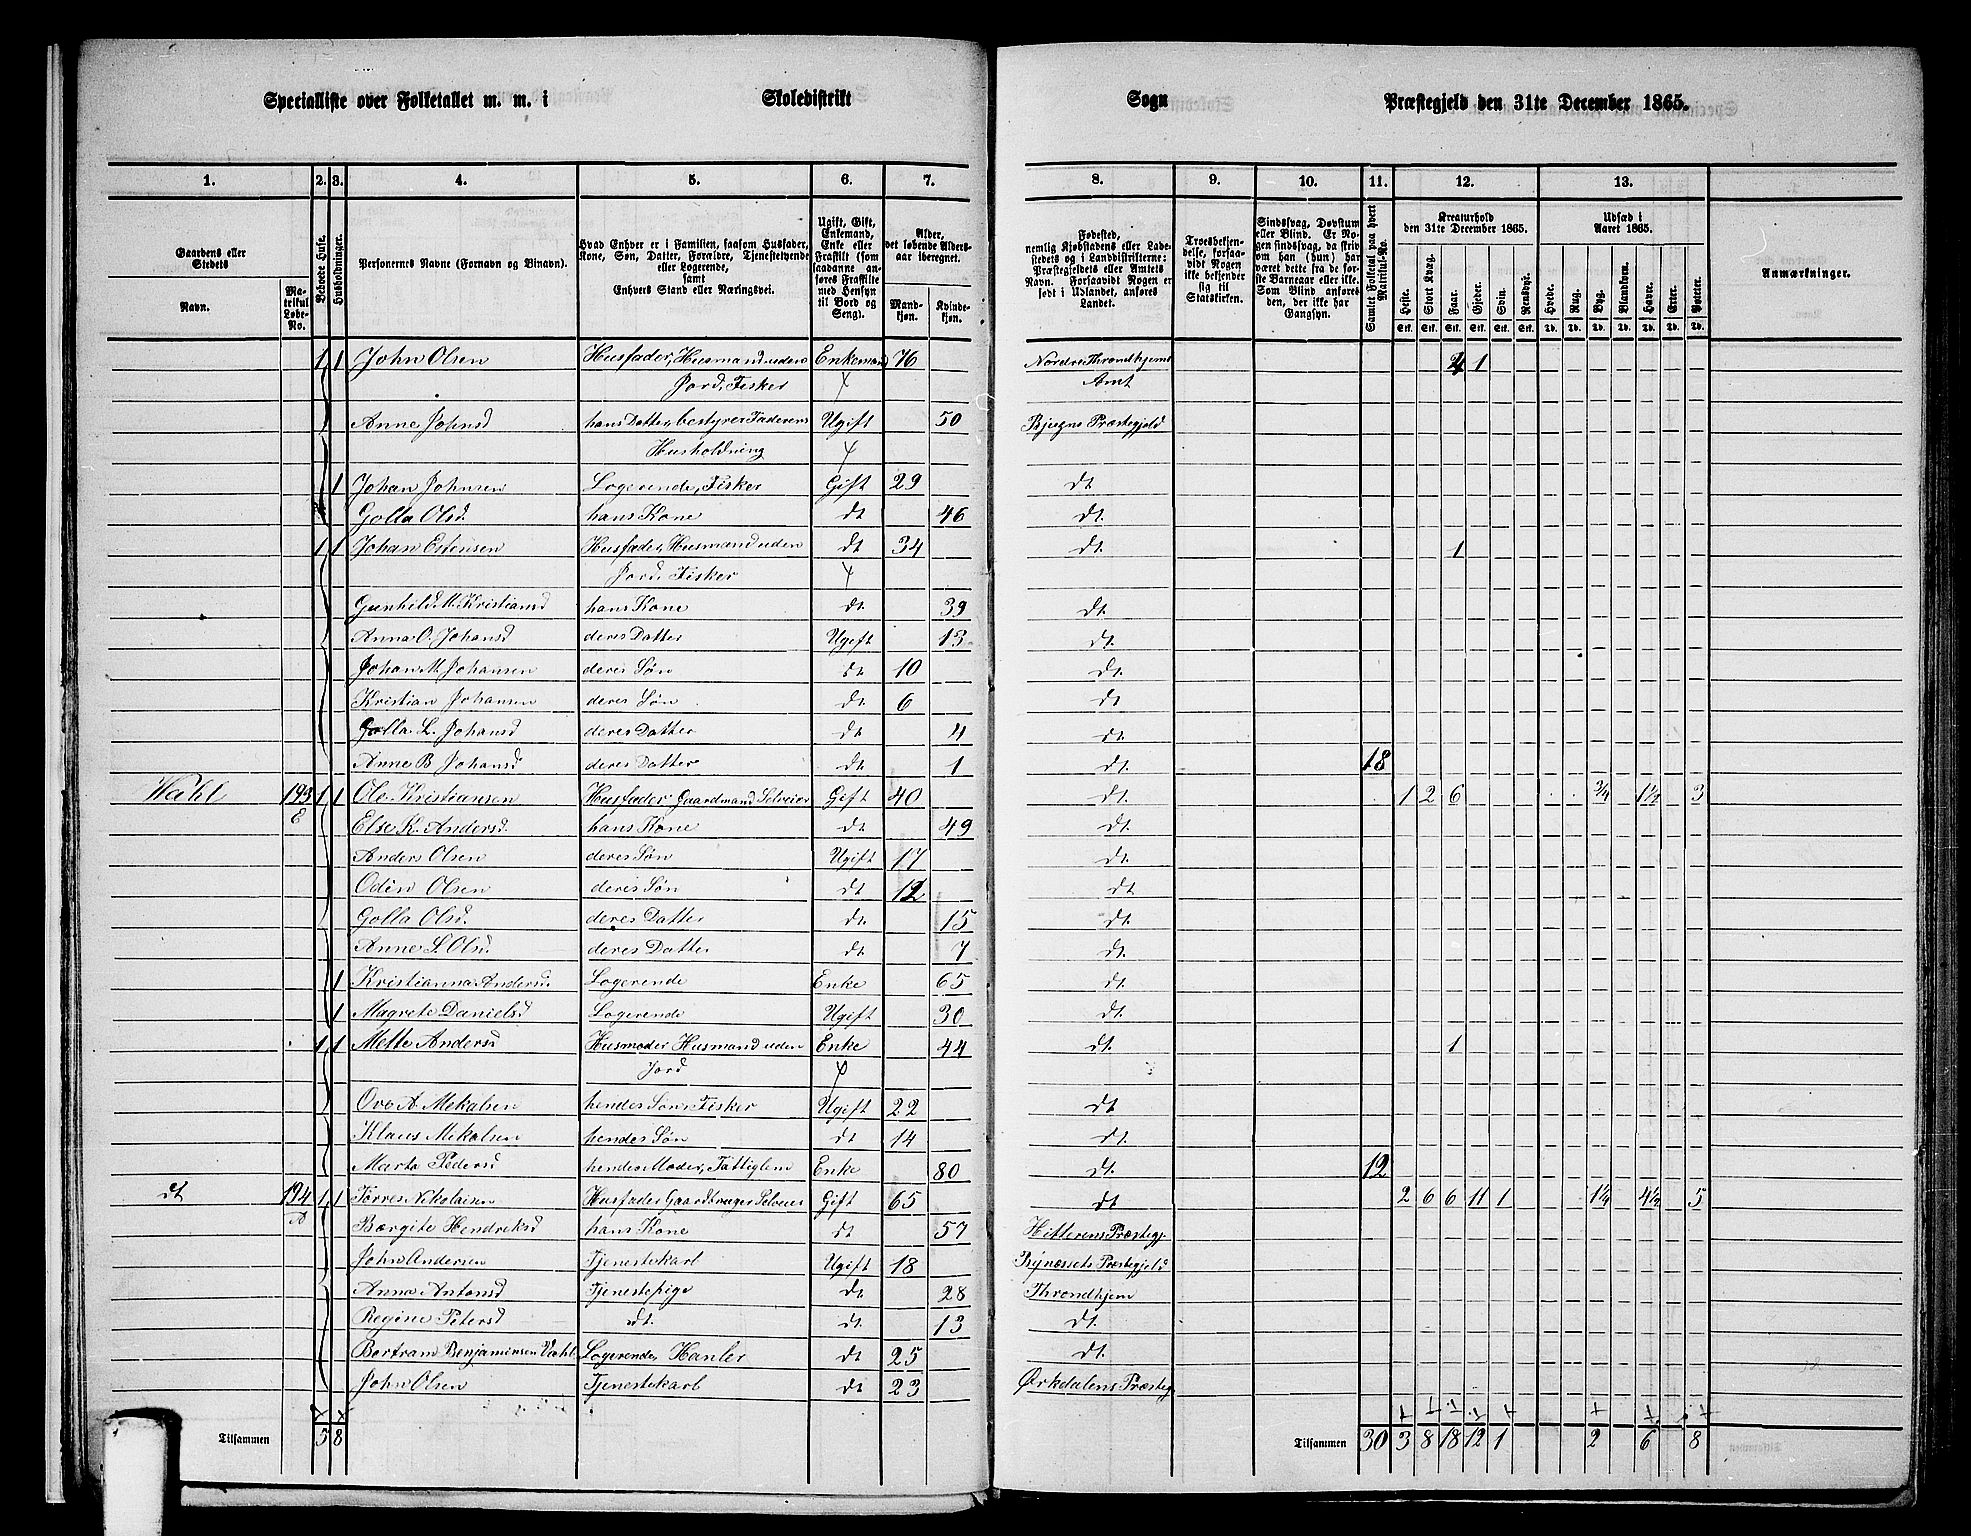 Specialliste over Folketallet m. m. i Skoledistrikt Sogn Præstegjeld den 31te December 1865.
1. 2. 3. 4. 5. 6. 7. 8. 9. 10. 11. 12. 13.
Gaardens eller Stedets
Navn.
Matrikul Løbe-No.
Beboede Huse.
Husholdninger.
Personernes Navne (Fornavn og Tilnavn).
Hvad Enhver er i Familien, saasom Husfader, Kone, Søn, Datter, Forældre, Tjenestetyende eller Logerende, samt Enhvers Stand eller Næringsvei.
Ugift, Gift, Enkemand, Enke eller Fraskilt (som saadanne anføres Fraskilte med Hensyn til Bord og Seng).
Alder, det løbende Aldersaar iberegnet.
Mandkjøn. Kvindekjøn.
Fødested, nemlig Kjøbstadens eller Ladestedets og i Landdistrikterne: Præstegjeldets eller Amtets Navn. Forsaavidt Nogen er født i Udlandet, anføres Landet.
Troesbekjendelse, forsaavidt Nogen ikke bekjender sig til Statskirken.
Sindssvag, Døvstum eller Blind. Er Nogen sindssvag, da skrives om han (hun) har været dette fra de første Barneaar eller ikke. Som Blind anføres den, der ikke har Gangsyn.
Samlet Folketal paa hvert Matrikul-No.
Kreaturhold den 31te December 1865.
Heste. Stort Kvæg. Faar. Gjeder. Svin. Rensdyr.
Stk. Stk. Stk. Stk. Stk. Stk.
Udsæd i Aaret 1865.
Hvede. Rug. Byg. Blandkorn. Havre. Erter. Poteter.
Td. Td. Td. Td. Td. Td. Td.
Anmærkninger.
1 1 John Olsen Husfader, Husmand uden Enkemand 76 Nordre Throndhjems 4 1
Jord, Fisker Amt
Anne Johnsd hans Datter, bestyrer Faderens Ugift 50 Bjugns Præstegjeld
Husholdning
1 Johan Johnsen Logerende, Fisker Gift 29 dt.
Golla Olsd. hans Kone dt 46 dt.
1 1 Johan Estensen Husfader, Husmand uden dt 34 dt. 1
Jord, Fisker
Gunhild M. Kristiansd hans Kone dt. 39 dt.
Anna O. Johansd deres Datter Ugift 13 dt.
Johan M. Johansen deres Søn dt 10 dt.
Kristian Johansen deres Søn dt. 6 dt.
Golla L. Johansd deres Datter dt. 4 dt.
Anne B Johansd deres Datter dt. 1 dt. 18
Wahl 193 1 1 Ole Kristiansen Husfader, Gaardmand Selveier Gift 40 dt. 1 2 6 3/4 1 1/2 3
E Else K. Andersd. hans Kone dt. 49 dt.
Anders Olsen deres Søn Ugift 17 dt.
Odin Olsen deres Søn dt 12 dt
Golla Olsd. deres Datter dt. 15 dt.
Anne S. Olsd. deres Datter dt. 7 dt.
1 Kristianna Andersd. Logerende Enke 65 dt.
1 Magrete Danielsd Logerende Ugift 30 dt.
1 1 Mette Andersd Husmoder Husmand uden Enke 44 dt. 1
Jord
Ove A Mekalsen hendes Søn Fisker Ugift 22 dt.
Klaus Mekalsen hendes Søn dt 14 dt.
Marta Pedersd hendes Moder, Fattiglem Enke 80 dt. 12
dt 194 1 1 Torres Nikolaisen Husfader Gaardbruger Selveier Gift 65 dt 2 6 6 11 1 1 1/4 4 1/2 5
A Bergite Hendreksd hans Kone dt 57 Hitterens Præstegj.
John Andersen Tjenestekarl Ugift 18 Bynæssets Præstegjeld
Anna Antonsd Tjenestepige dt. 28 Throndhjem
Regine Petersd dt. dt. 13 dt.
Bertram Benjaminsen Wahl Logerende, Hanler dt 25 dt.
John Olsen Tjenestekarl dt 23 Ørkdalens Præsteg.
Tilsammen 5 8 Tilsammen 30 3 8 18 12 1 2 6 8